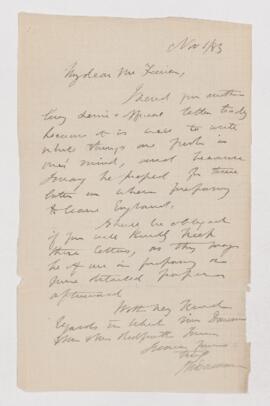 Nov 1/83
My dear Mr Frier,
I send you another
long semi-official letter today
because it is well to write
while things are fresh in
one's mind, and because
I may be pressed for time
later on when preparing
to leave England.
I shall be obliged
if you will kindly keep
these letters, as they may
be of use in preparing a
more detailed paper
afterward
With very kind
regards in which Mrs Dawson
& Mr & Mrs Redpath
yours
truly